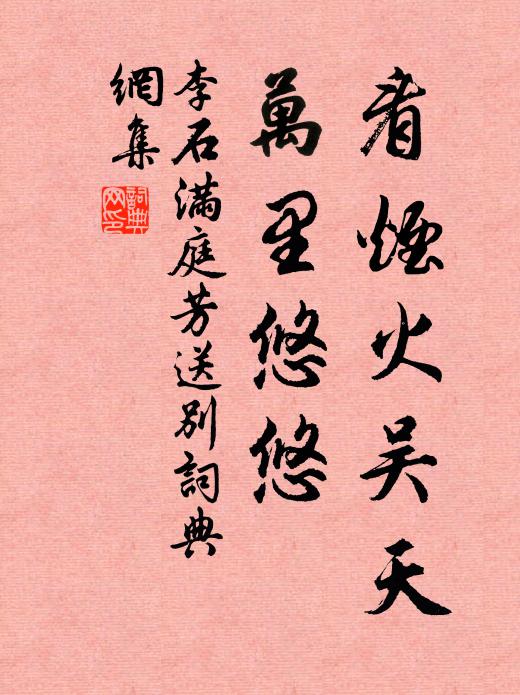 看煙火吴天
萬里悠悠
李石满庭芳送别詞典
網集
詞典网印